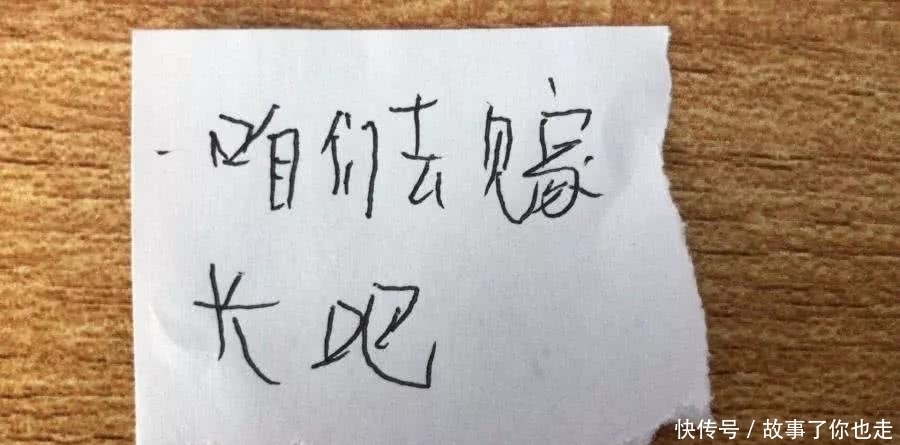 咱们去见家
长吧
快传号 / 故事了你也走